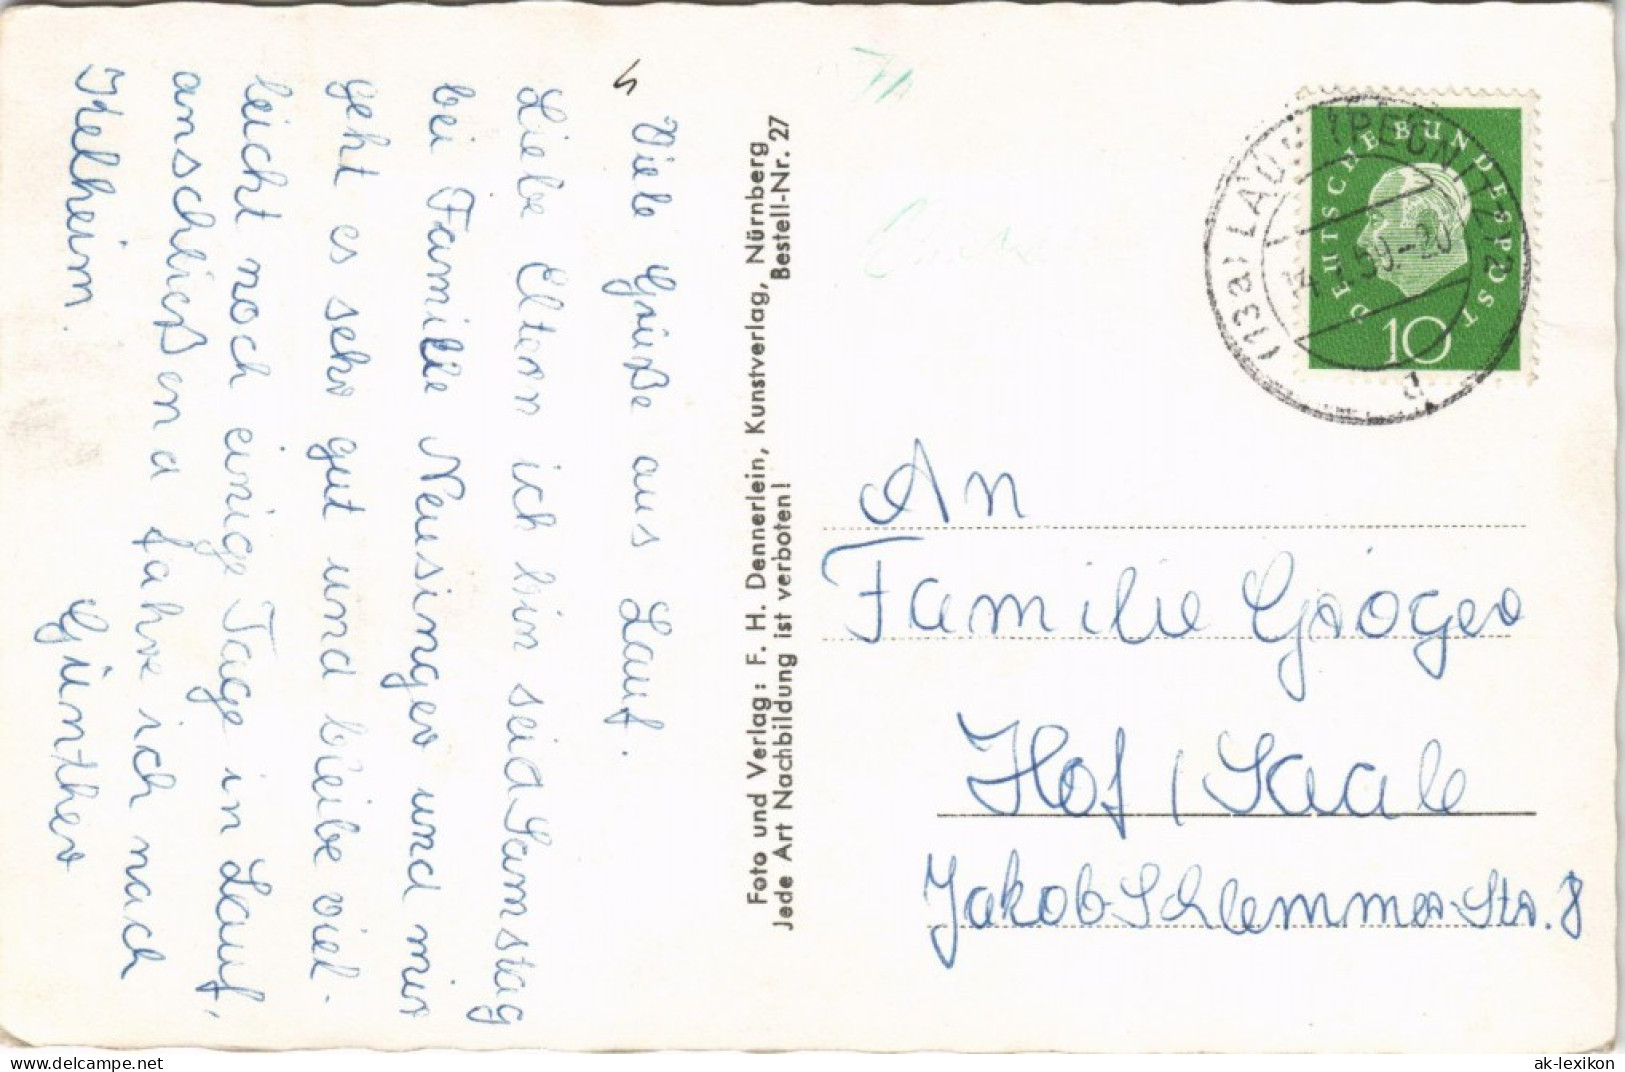 Viele Grüße aus Lauf.
Liebe Eltern ich bin seid Samstag
bei Familie Neusinger und mir
geht es sehr gut und bleibe viel-
leicht noch einige Tage in Lauf,
anschließend fahre ich nach
Kelheim.
Günther
Foto und Verlag: F. H. Dennerlein, Kunstverlag, Nürnberg
Jede Art Nachbildung ist verboten! Bestell-Nr. 27
DEUTSCHE BUNDESPOST
10
(13a) LAUF (PEGNITZ) 2
-20
a
An
Familie Gröger
Hof / Saale
Jakob-Schlemmer-Str. 8
www.delcampe.net
ak-lexikon